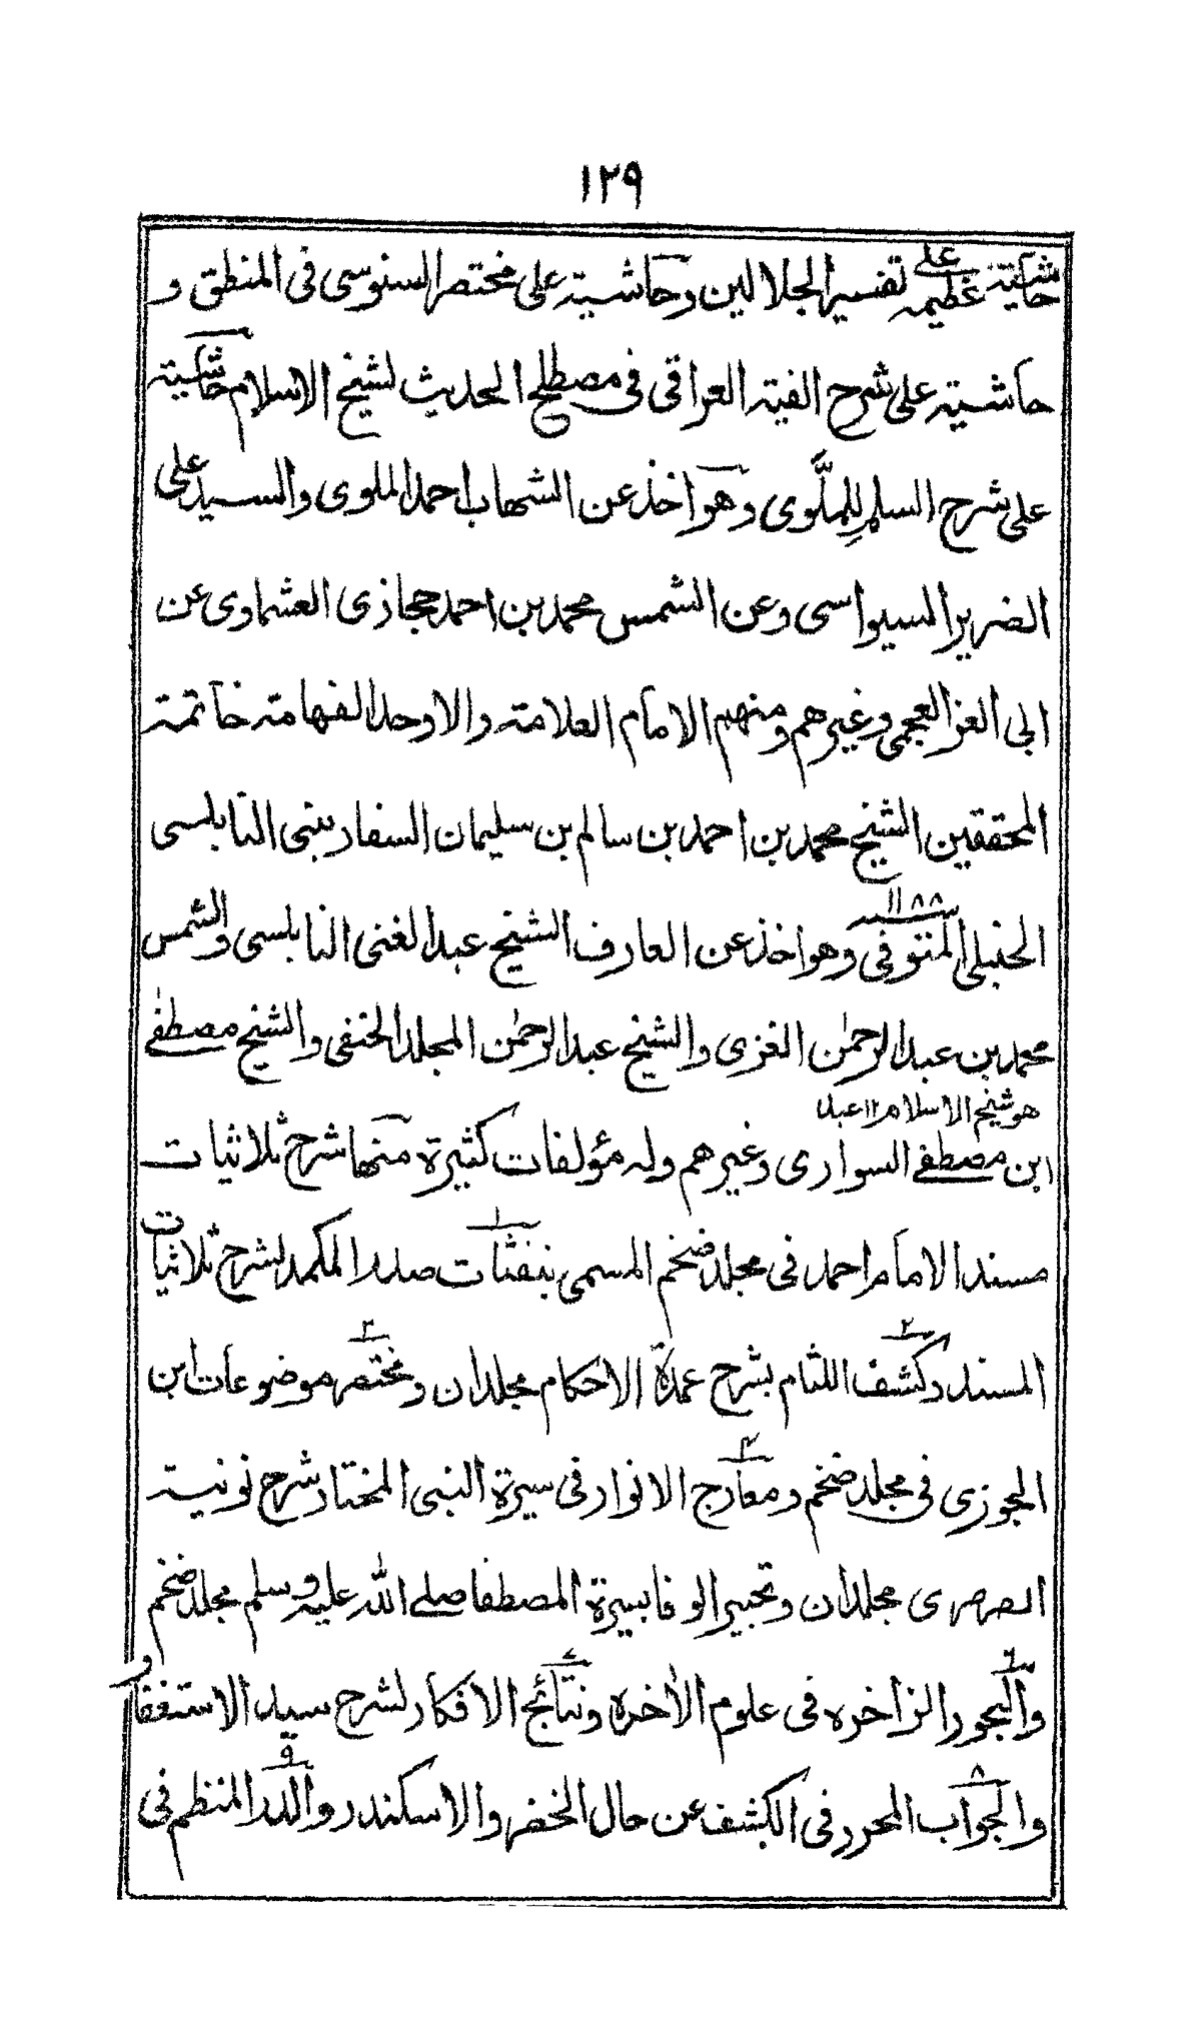 ١٢٩
حاشية عظيمة على تفسير الجلالين وحاشية على مختصر السنوسى فى المنطق و
حاشية على شرح الفية العراقى فى مصطلح الحديث لشيخ الاسلام حاشية
على شرح السلم لِلملَّوى وهو اخذ عن الشهاب احمد الملوى والسيد على
الضرير السيواسى وعن الشمس محمد بن احمد حجازى العشماوى عن
ابى العز العجمى وغيرهم ومنهم الامام العلامة والاوحد الفهامة خاتمة
المحققين الشيخ محمد بن احمد بن سالم بن سليمان السفارينى النابلسى
الحنبلى المتوفى ١١٨٨ وهو اخذ عن العارف الشيخ عبد الغنى النابلسى والشمس
محمد بن عبد الرحمٰن الغزى والشيخ عبد الرحمٰن المجلد الحنفى والشيخ مصطفٰى
هو شيخ الاسلام ١٢ عبد
ابن مصطفى السوارى وغيرهم وله مؤلفات كثيرة منها شرح ثلاثيات
مسند الامام احمد فى مجلد ضخم المسمى بنفثات صدر المكمد لشرح ثلاثيات
المسند وكشف اللثام بشرح عمدة الاحكام مجلدان ومختصر موضوعات ابن
الجوزى فى مجلد ضخم ومعارج الانوار فى سيرة النبى المختار شرح نونية
الصرصرى مجلدان وتحبير الوفا بسيرة المصطفا صلى الله عليه وسلم مجلد ضخم
والبحور الزاخره فى علوم الاٰخره ونتائج الافكار لشرح سيد الاستغفار
والجواب المحرر فى الكشف عن حال الخضر والاسكندر والدر المنظم فى